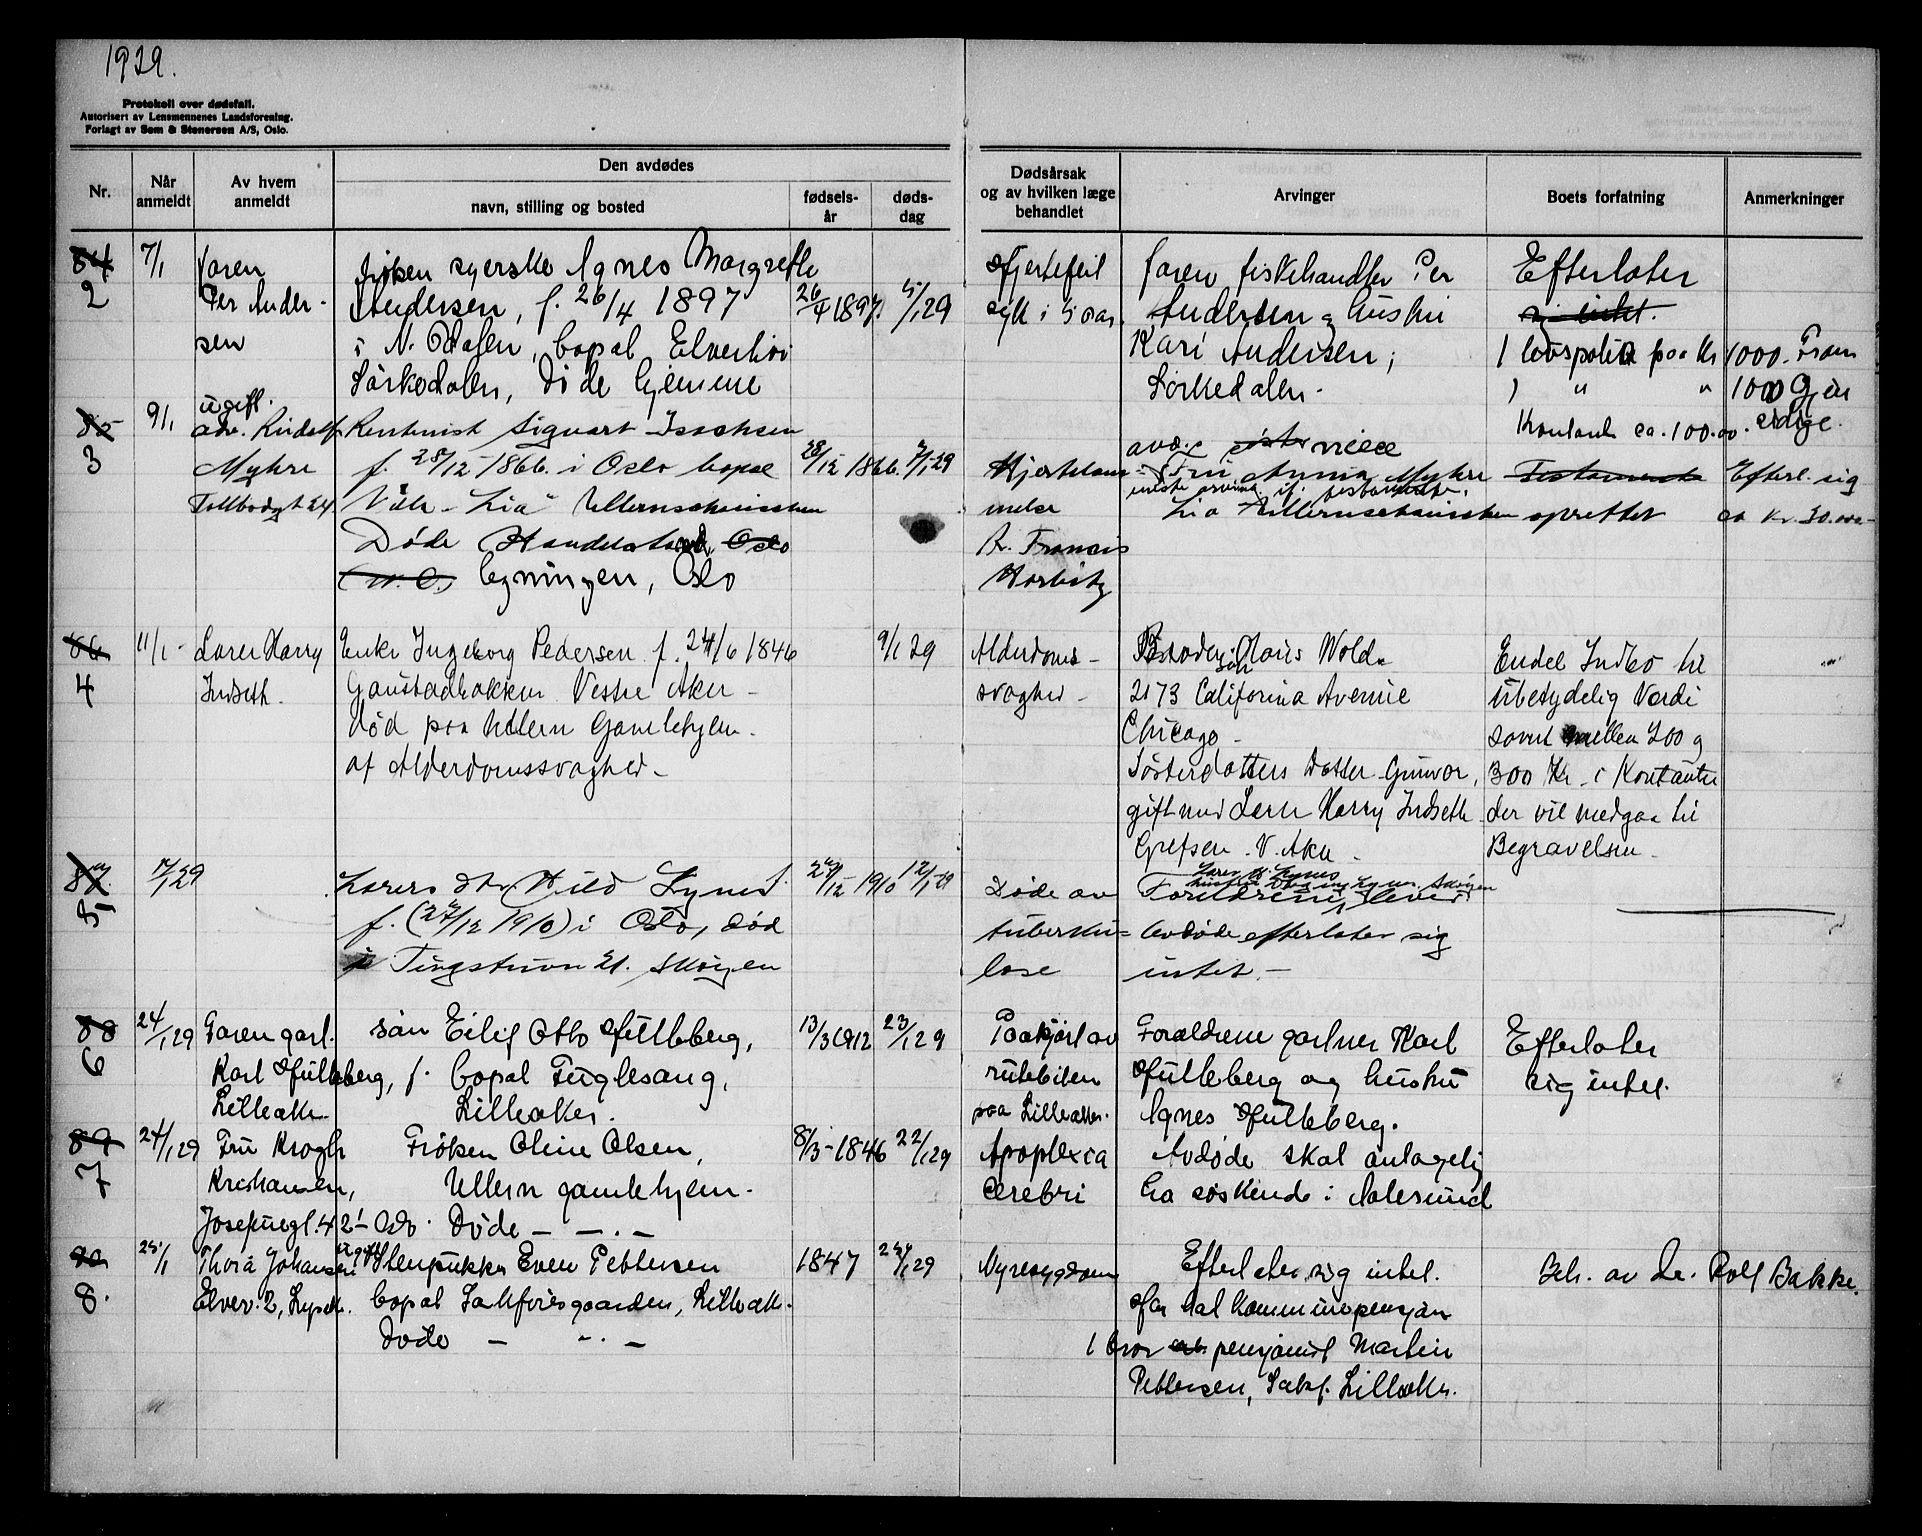 1929.
Protokoll over dødsfall.
Autorisert av Lensmennenes Landsforening.
Forlagt av Sem & Stenersen A/S, Oslo.
Nr.
Når anmeldt
Av hvem anmeldt
Den avdødes
navn, stilling og bosted
fødsels-år
døds-dag
Dødsårsak og av hvilken læge behandlet
Arvinger
Boets forfatning
Anmerkninger
84
2
7/1
faren
Per Ander-
sen
frøken syerske Agnes Margrethe
Andersen, f. 26/4 1897
i N. Odalen, bopæl Elverhøi
Sørkedalen, døde hjemme
ugift.
26/4 1897
5/1 29
Hjertefeil
syk i 5 aar.
faren fiskehandler Per
Andersen og hustru
Kari Andersen,
Sørkedalen.
Efterlater
sig intet.
1 livspolise paa Kr 1000. Fram
1 " " 1000 Gjen
Kontant ca. 100.00. sidige.
85
3
9/1
adv. Rudolf
Myhre
Tollbodgt 24
Rentenist Sigvart Isachsen
f. 28/12-1866. i Oslo bopæl
Villa "Lia" Ullernschausséen
Døde Handelstand Oslo
bygningen, Oslo
28/12 1866.
7/1-29
Hjertelam-
melse
Dr. Francis
Harbitz
avd. søster niece
Fru Anna Myhre
eneste arving if. testamente.
Lia Ullernschausséen
Testamente
oprettet
Efterl. sig
ca kr. 30.000-
86
4
11/1-
Lærer Harry
Indseth.
Enke Ingeborg Pedersen f. 24/6 1846
Gaustadbakken Vestre Aker -
død paa Ullern Gamlehjem.
af Alderdomssvaghed -
9/1 29
Alderdoms-
svaghed -
Søn
2173 California Avenue
Chicago -
Søsterdatters Datter Gunvor,
gift med Lærer Harry Indseth
Grefsen. V. Aker -
Endel Indbo til
ubetydelig Verdi
samt mellem 200 og
300 Kr. i Kontanter
der vil medgaa til
Begravelsen -
87
5
17/1 29
Lærers dtr. Hild Lynes.
f. (27/12 1910) i Oslo, død
i Tingstuvn 21. Skøyen
27/12 1910
12/1-29
Døde av
tuberku-
lose
Foreldrene lever
Avdøde efterlater sig
intet. -
88
6
24/1 29
Faren gart.
Karl Hulleberg,
Lilleaker
søn Eilif Otto Hulleberg,
f. bopæl Fuglesang,
Lilleaker.
13/3 1912
23/1 29
Paakjørt av
rutebilen
paa Lilleaker.
Forældrene gartner Karl
Hulleberg og hustru
Agnes Hulleberg.
Efterlater
sig intet.
89
7
24/1 29
Fru Krogh
Kristiansen,
Josefinegt. 42 I Oslo.
Frøken Oline Olsen,
Ullern gamlehjem.
Døde - " -
8/3-1846
22/1 29
Apoplexia
cerebri
Avdøde skal antagelig
ha søskende i Aalesund
90
8.
25/1
Thora Johansen
Elver. 2, Lysak.
ugift Stenpukker Even Pettersen
bopæl Sakførergaarden, Lilleaker.
Døde - " -
1847
24/1 29
Nyresygdom
Efterlater sig intet.
Har hat kommunepensjon
1 bror pensjonist Martin
Pettersen, Sakf. Lilleaker.
Beh. av Dr. Rolf Bakke.